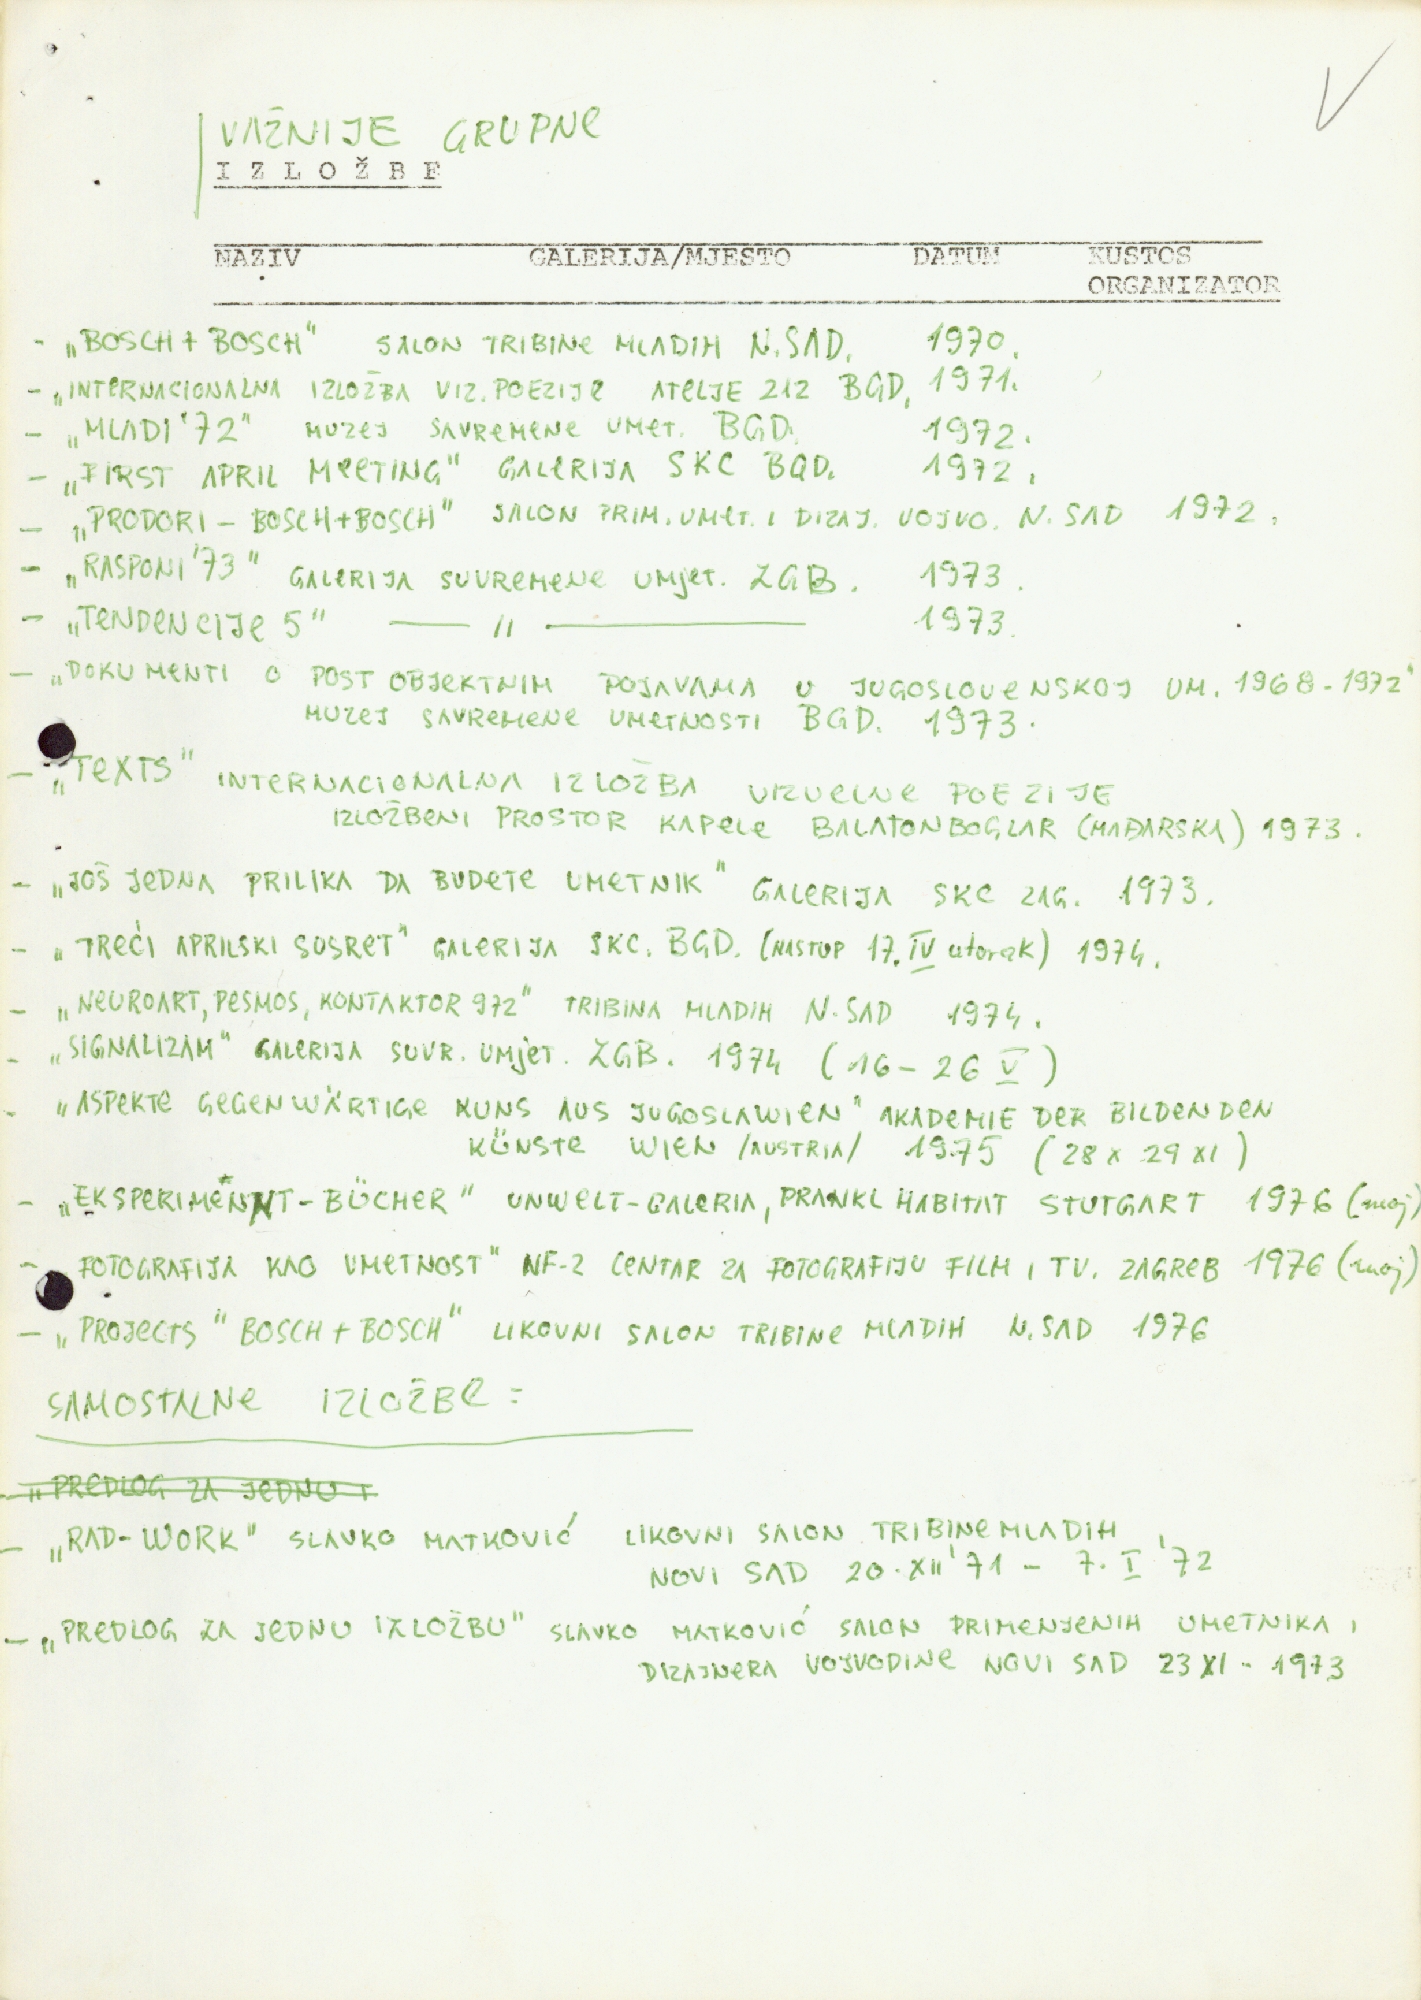 VAŽNIJE GRUPNE
IZLOŽBE
NAZIV GALERIJA/MJESTO DATUM KUSTOS
ORGANIZATOR
- „BOSCH + BOSCH" SALON TRIBINE MLADIH N.SAD. 1970.
- „INTERNACIONALNA IZLOŽBA VIZ. POEZIJE ATELJE 212 BGD. 1971.
- „MLADI '72" MUZEJ SAVREMENE UMET. BGD. 1972.
- „FIRST APRIL MEETING" GALERIJA SKC BGD. 1972.
- „PRODORI - BOSCH+BOSCH" SALON PRIM. UMET. I DIZAJ. VOJVO. N. SAD 1972.
- „RASPONI '73" GALERIJA SUVREMENE UMJET. ZGB. 1973.
- „TENDENCIJE 5" —— " —— 1973.
- „DOKUMENTI O POST OBJEKTNIM POJAVAMA U JUGOSLOVENSKOJ UM. 1968-1972"
MUZEJ SAVREMENE UMETNOSTI BGD. 1973.
- „TEXTS" INTERNACIONALNA IZLOŽBA VIZUELNE POEZIJE
IZLOŽBENI PROSTOR KAPELE BALATONBOGLAR (MAĐARSKA) 1973.
- „JOŠ JEDNA PRILIKA DA BUDETE UMETNIK" GALERIJA SKC ZAG. 1973.
- „TREĆI APRILSKI SUSRET" GALERIJA SKC. BGD. (NASTUP 17. IV utorak) 1974.
- „NEUROART, PESMOS, KONTAKTOR 972" TRIBINA MLADIH N. SAD 1974.
- „SIGNALIZAM" GALERIJA SUVR. UMJET. ZGB. 1974 (16 - 26 V)
- „ASPEKTE GEGENWÄRTIGE KUNS AUS JUGOSLAWIEN" AKADEMIE DER BILDENDEN
KÜNSTE WIEN /AUSTRIA/ 1975 (28 X 29 XI)
- „EKSPERIMENNT-BÜCHER" UNWELT-GALERIA, PRANKL HABITAT STUTGART 1976 (moj)
- FOTOGRAFIJA KAO UMETNOST" NF-2 CENTAR ZA FOTOGRAFIJU FILM I TV. ZAGREB 1976 (moj)
- „PROJECTS" BOSCH + BOSCH" LIKOVNI SALON TRIBINE MLADIH N. SAD 1976
SAMOSTALNE IZLOŽBE :
- „PREDLOG ZA JEDNU I
- „RAD-WORK" SLAVKO MATKOVIĆ LIKOVNI SALON TRIBINE MLADIH
NOVI SAD 20. XII '71 - 7. I '72
- „PREDLOG ZA JEDNU IZLOŽBU" SLAVKO MATKOVIĆ SALON PRIMENJENIH UMETNIKA I
DIZAJNERA VOJVODINE NOVI SAD 23 XI - 1973